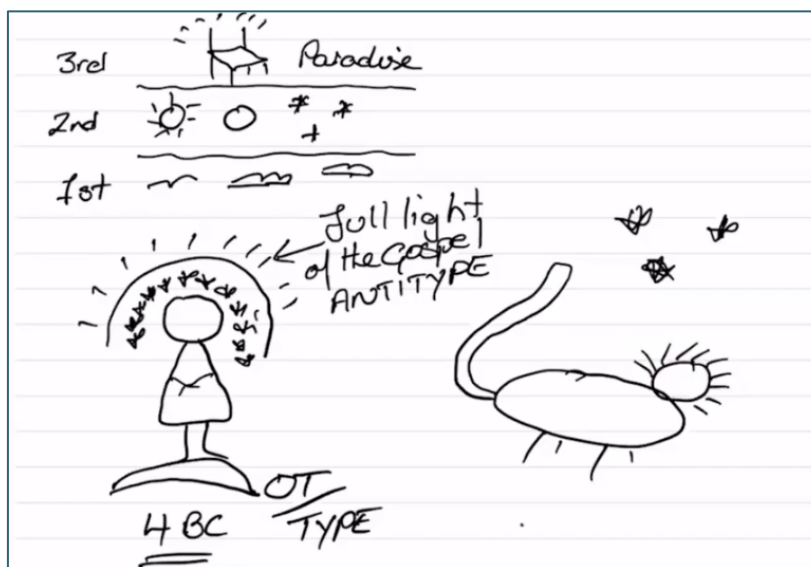 3rd Paradise
2nd
1st
full light
of the Gospel
ANTITYPE
OT
TYPE
4 BC